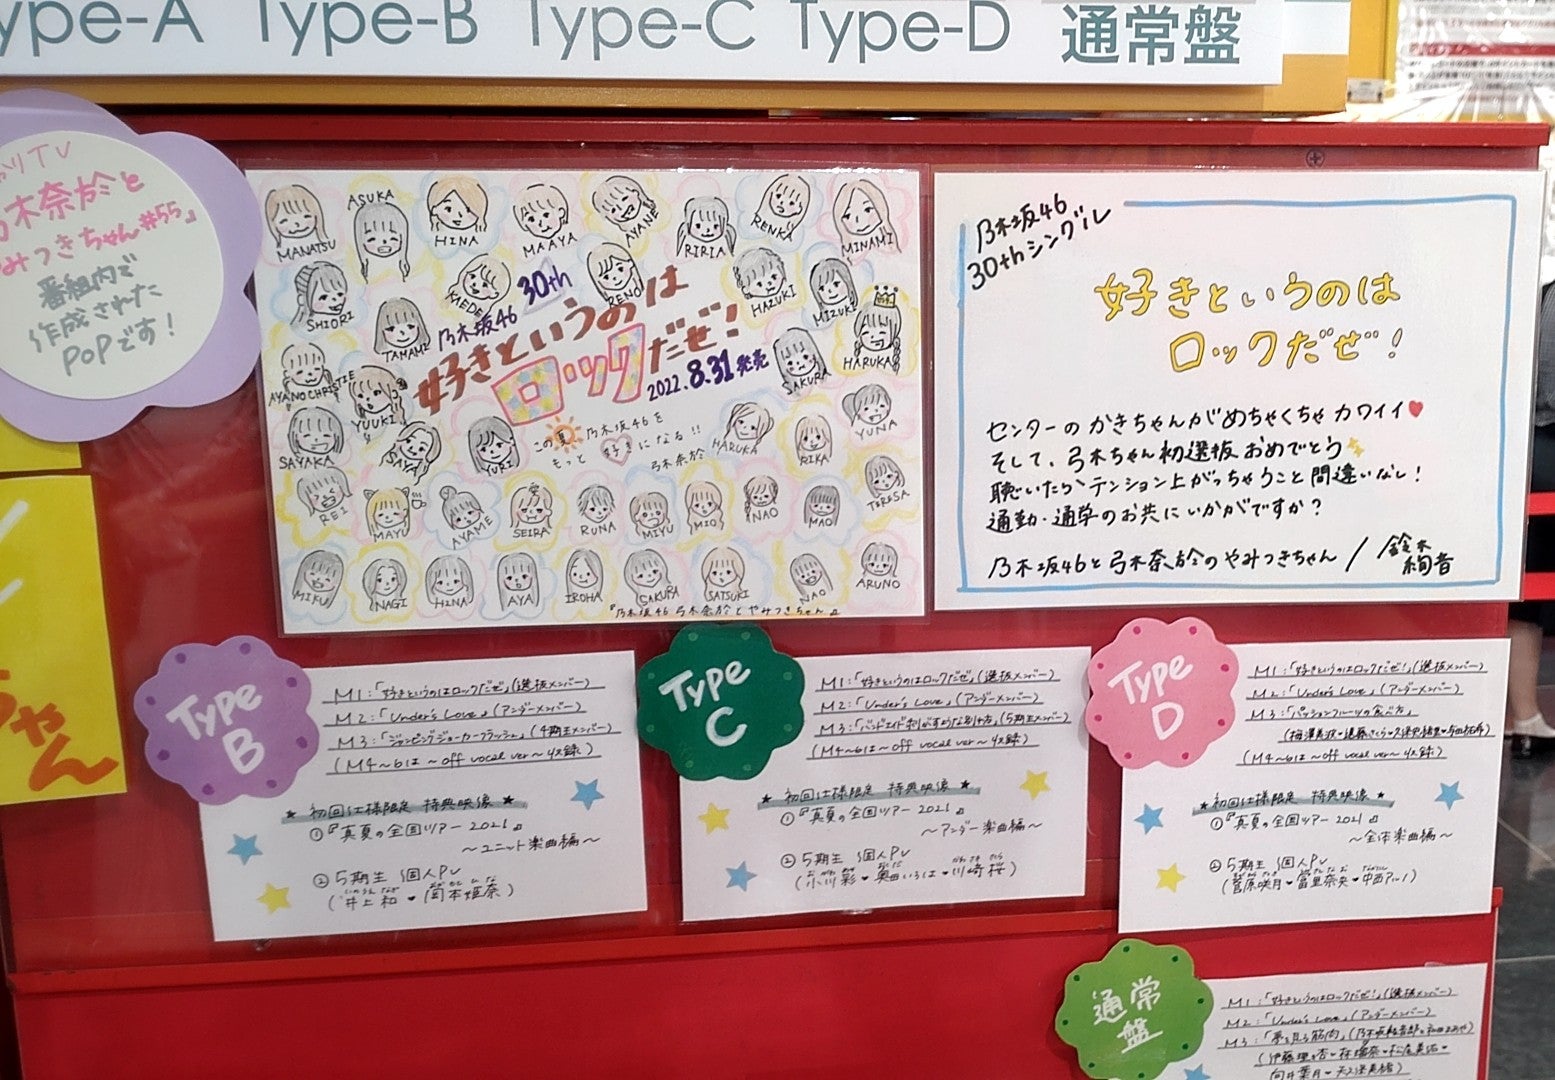 ype-A Type-B Type-C Type-D 通常盤
TV
木奈於と
みつきちゃん#55」
番組内で
作成された
POPです!
ちゃん
MANATSU
ASUKA
HINA
MAAYA
AYANE
RIRIA
RENKA
MINAMI
SHIORI
TAMAMI
KAEDE
RENO
HAZUKI
MIZUKI
HARUKA
乃木坂46 30th
好きというのは
ロックだぜ!
2022.8.31発売
この夏乃木坂46を
もっと好きになる!!
弓木奈於
AYANO CHRISTIE
YUUKI
SAKURA
SAYAKA
SAYA
YURI
HARUKA
RIKA
YUNA
REI
MAYU
AYAME
SEIRA
RUNA
MIYU
MIO
NAO
MAO
TERESA
MIKU
NAGI
HINA
AYA
IROHA
SAKURA
SATSUKI
NAO
ARUNO
『乃木坂46 弓木奈於とやみつきちゃん』
乃木坂46
30thシングル
好きというのは
ロックだぜ!
センターのかきちゃんがめちゃくちゃカワイイ♥
そして、弓木ちゃん初選抜おめでとう
聴いたらテンション上がっちゃうこと間違いなし!
通勤・通学のお共にいかがですか?
乃木坂46と弓木奈於のやみつきちゃん / 鈴木絢音
Type B
M1:「好きというのはロックだぜ」(選抜メンバー)
M2:「Under's Love」(アンダーメンバー)
M3:「ジャンピングジョーカーフラッシュ」(4期生メンバー)
(M4〜6は〜off vocal ver〜収録)
★初回仕様限定 特典映像★
①『真夏の全国ツアー2021』
〜ユニット楽曲編〜
②5期生 個人PV
(井上和・岡本姫奈)
Type C
M1:「好きというのはロックだぜ」(選抜メンバー)
M2:「Under's Love」(アンダーメンバー)
M3:「バンドエイド剥がすような別れ方」(5期生メンバー)
(M4〜6は〜off vocal ver〜収録)
★初回仕様限定 特典映像★
①『真夏の全国ツアー2021』
〜アンダー楽曲編〜
②5期生 個人PV
(小川彩・奥田いろは・川﨑桜)
Type D
M1:「好きというのはロックだぜ!」(選抜メンバー)
M2:「Under's Love」(アンダーメンバー)
M3:「パッションフルーツの食べ方」
(梅澤美波・遠藤さくら・久保史緒里・与田祐希)
(M4〜6は〜off vocal ver〜収録)
★初回仕様限定 特典映像★
①『真夏の全国ツアー2021』
〜全体楽曲編〜
②5期生 個人PV
(菅原咲月・冨里奈央・中西アルノ)
通常盤
M1:「好きというのはロックだぜ!」(選抜メンバー)
M2:「Under's Love」(アンダーメンバー)
M3:「夢を見る筋肉」(乃木坂軽音部と和田まあや)
(伊藤理々杏・林瑠奈・松尾美佑・
向井葉月・矢久保美緒)